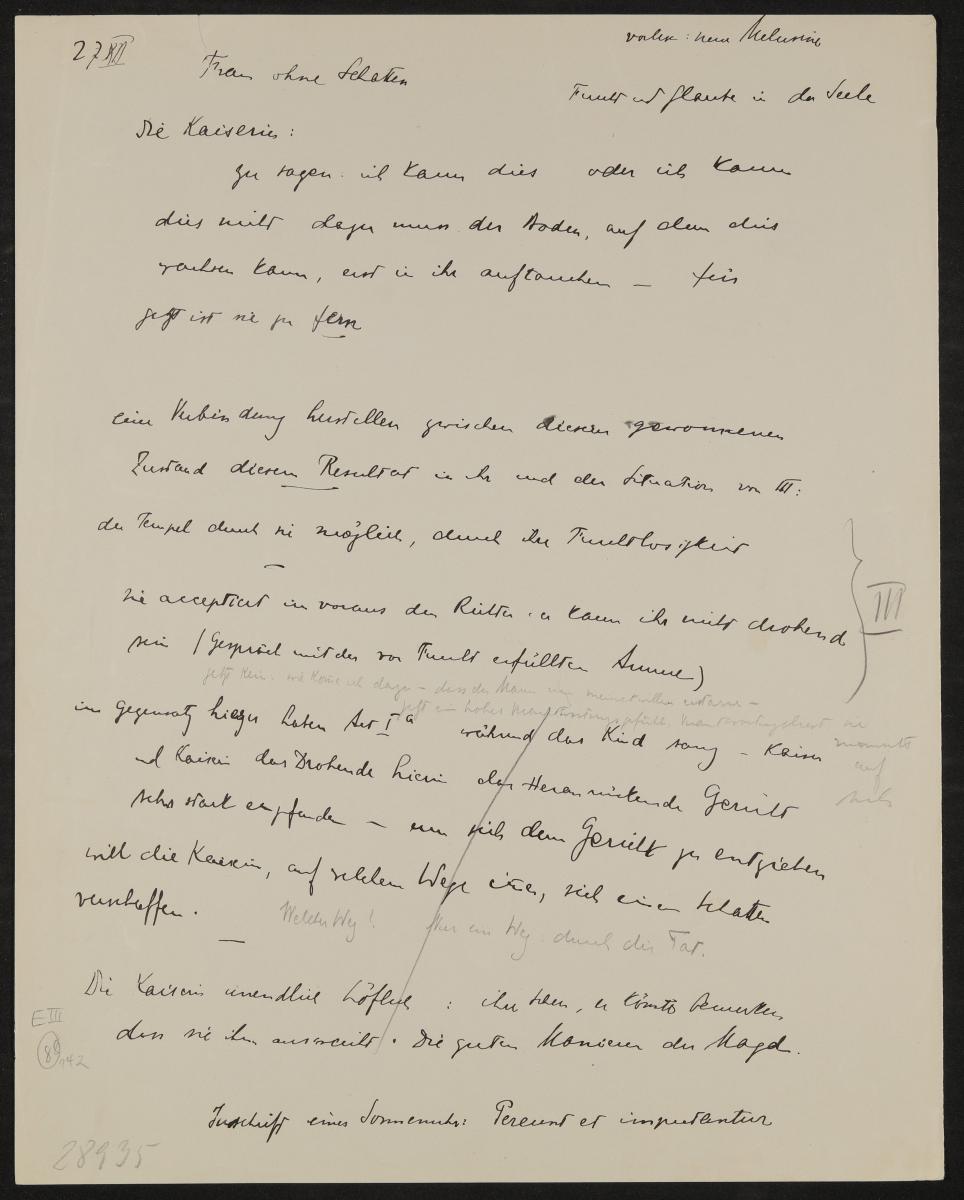 27 XII
vorher: neue Melusine
Frau ohne Schatten
Furcht und Glaube in der Seele
Die Kaiserin:
zu sagen: ich kann dies oder ich kann
dies nicht dazu muss der Boden, auf dem dies
wachsen kann, erst in ihr auftauchen — für
jetzt ist sie zu fern
eine Verbindung herstellen zwischen diesem gewonnenen
Zustand diesem Resultat in ihr und der Situation von III:
der Tempel durch sie möglich, durch ihre Furchtlosigkeit
sie acceptiert im voraus den Richter: er kann ihr nicht drohend
sein (Gespräch mit der von Furcht erfüllten Amme)
III
jetzt kein: wie komme ich dazu – dass der Mann um meinetwillen
jetzt ein hohes
momentb
auf
sich
im Gegensatz hiezu haben Act I a während das Kind sang – Kaiser
und Kaiserin das Drohende hierin das Heranrückende Gericht
sehr stark empfunden – um sich dem Gericht zu entziehen
will die Kaiserin, auf welchem Wege immer, sich einen Schatten
verschaffen.
Welcher Weg! Nur ein Weg: durch die Tat.
Die Kaiserin unendlich höflich: ihre Scheu, er könnte bemerken
dass sie ihm ausweicht. Die guten Manieren der Magd.
E III
89
142
Inschrift einer Sonnenuhr: Pereunt et imputantur
28935